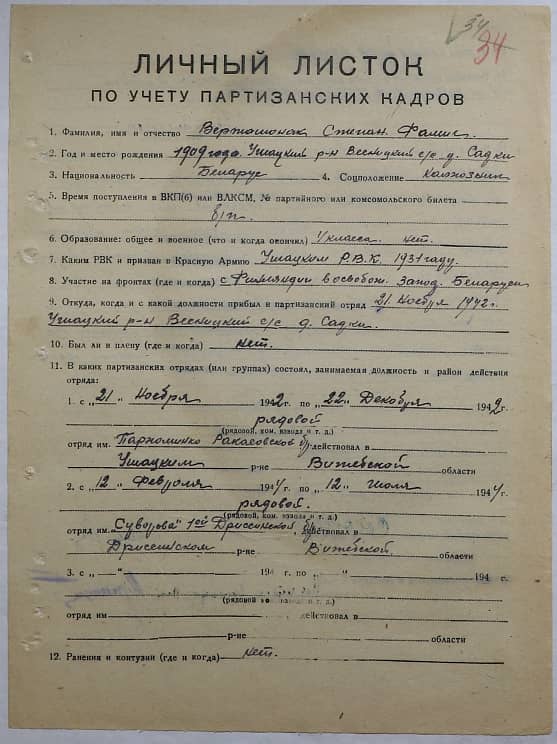 34
34
ЛИЧНЫЙ ЛИСТОК
ПО УЧЕТУ ПАРТИЗАНСКИХ КАДРОВ
1. Фамилия, имя и отчество Степан
2. Год и место рождения 1909 года. Ушацкий р-н Весницкий с/с д. Садки
3. Национальность Беларус 4. Соцположение Колхозник
5. Время поступления в ВКП(б) или ВЛКСМ, № партийного или комсомольского билета
б/п.
6. Образование: общее и военное (что и когда окончил) 4 класса. нет.
7. Каким РВК и призван в Красную Армию Ушацким Р.В.К. 1931 году.
8. Участие на фронтах (где и когда) с Финляндии освобож. Запод. Беларусен
9. Откуда, когда и с какой должности прибыл в партизанский отряд 21 Ноября 1942 г.
Ушацкий р-н Весницкий с/с д. Садки.
10. Был ли в плену (где и когда) нет.
11. В каких партизанских отрядах (или группах) состоял, занимаемая должность и район действия
отряда:
1. с „21“ Ноября 1942 г. по „22“ Декобря 1942 г.
рядовой
(рядовой, ком. взвода и т. д.)
отряд им. действовал в
Ушацким р-не Витебской области
2. с „12“ Февроля 1944 г. по „12“ Июля 1944 г.
рядовой.
(рядовой, ком. взвода и т. д.)
отряд им. „Суворова“ 1ой Дриссенской бр. действовал в
Дриссенском р-не Витебской. области
3. с „ “ 194 г. по „ “ 194 г.
(рядовой ком. взвода и т. д.)
отряд им действовал в
р-не области
12. Ранения и контузии (где и когда) нет.